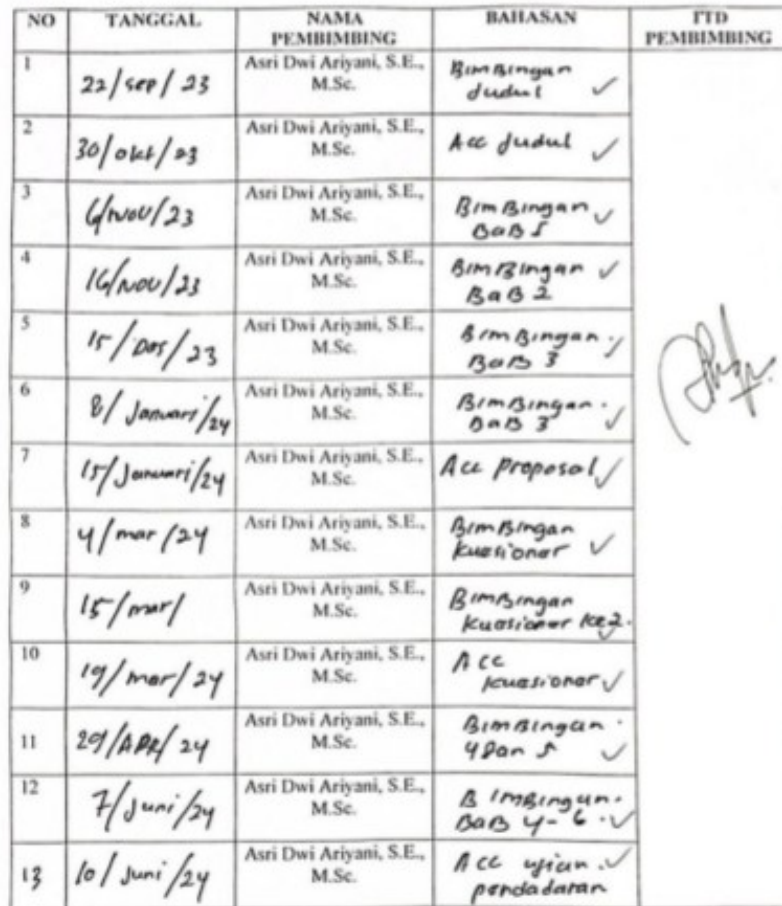 NO TANGGAL NAMA PEMBIMBING BAHASAN TTD PEMBIMBING
1 22/sep/23 Asri Dwi Ariyani, S.E., M.Sc. Bimbingan Judul ✓
2 30/okt/23 Asri Dwi Ariyani, S.E., M.Sc. Acc Judul ✓
3 6/NOV/23 Asri Dwi Ariyani, S.E., M.Sc. Bimbingan BaB ✓
4 16/NOV/23 Asri Dwi Ariyani, S.E., M.Sc. Bimbingan BaB 2 ✓
5 15/Des/23 Asri Dwi Ariyani, S.E., M.Sc. Bimbingan BaB 3 ✓
6 8/Januari/24 Asri Dwi Ariyani, S.E., M.Sc. Bimbingan BaB 3 ✓
7 15/Januari/24 Asri Dwi Ariyani, S.E., M.Sc. Acc proposal ✓
8 4/mar/24 Asri Dwi Ariyani, S.E., M.Sc. Bimbingan kuesioner ✓
9 15/mar/ Asri Dwi Ariyani, S.E., M.Sc. Bimbingan kuesioner ke2.
10 19/mar/24 Asri Dwi Ariyani, S.E., M.Sc. Acc kuesioner ✓
11 29/APR/24 Asri Dwi Ariyani, S.E., M.Sc. Bimbingan 4 Dan 5 ✓
12 7/Juni/24 Asri Dwi Ariyani, S.E., M.Sc. Bimbingan. BaB 4-6 ✓
13 10/Juni/24 Asri Dwi Ariyani, S.E., M.Sc. Acc ujian pendadaran ✓